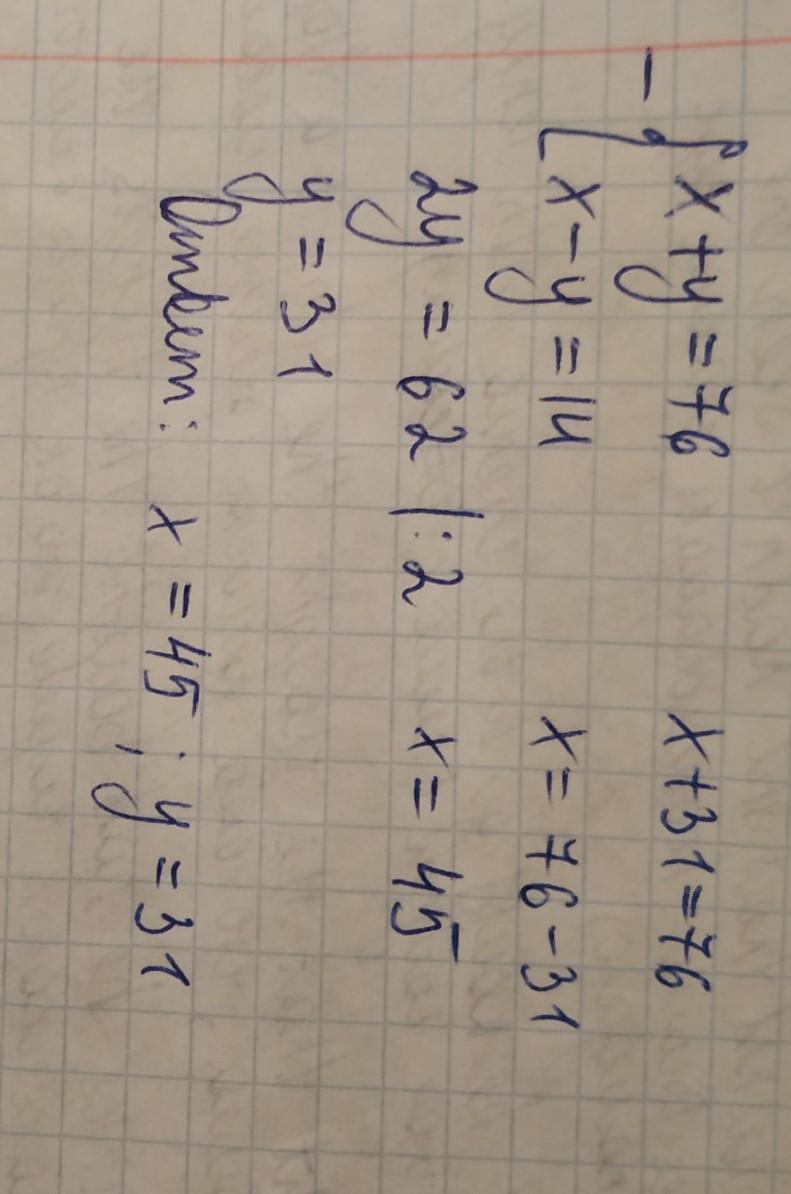 - { x + y = 76
x - y = 14
2y = 62 |:2
y = 31
x + 31 = 76
x = 76 - 31
x = 45
Ответ: x = 45; y = 31